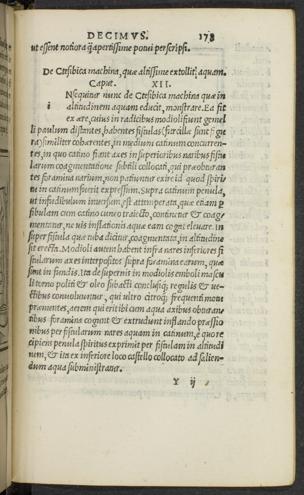 DECIMVS. 173
ut essent notiora q̃ apertissime potui perscripsi.
De Ctesibica machina, quæ altissime extollit aquam.
Caput. XII.
INsequitur nunc de Ctesibica machina quæ in
altitudinem aquam educit, monstrare. Ea fit
ex ære, cuius in radicibus modioli fiunt gemel
li paulum distantes, habentes fistulas (furcillæ sunt figu
ra) similiter cohærentes, in medium catinum concurren-
tes, in quo catino fiant axes in superioribus naribus fistu
larum coagmentatione subtili collocati, qui præobturan
tes foramina narium, non patiuntur exire id quod spiri
tu in catinum fuerit expressum. Supra catinum penula,
ut infundibulum inuersum, est attemperata, quæ etiam p
fibulam cum catino cuneo traiecto, continetur & coag-
mentatur, ne uis inflationis aquæ eam cogat eleuare. In
super fistula quæ tuba dicitur, coagmentata, in altitudine
fit erecta. Modioli autem habent infra nares inferiores fi
stularum axes interpositos supra foramina earum, quæ
sunt in fundis. Ita de supernis in modiolis emboli mascu
li torno politi & oleo subacti conclusiq; regulis & ue-
ctibus conuoluuntur, qui ultro citroq; frequenti motu
præmentes, aerem qui erit ibi cum aqua axibus obturan-
tibus foramina cogunt & extrudunt inflando præssio
nibus per fistularum nares aquam in catinum, è quo re
cipiens penula spiritus exprimit per fistulam in altitudi
nem, & ita ex inferiore loco castello collocato ad salien-
dum aqua subministratur.
Y ij